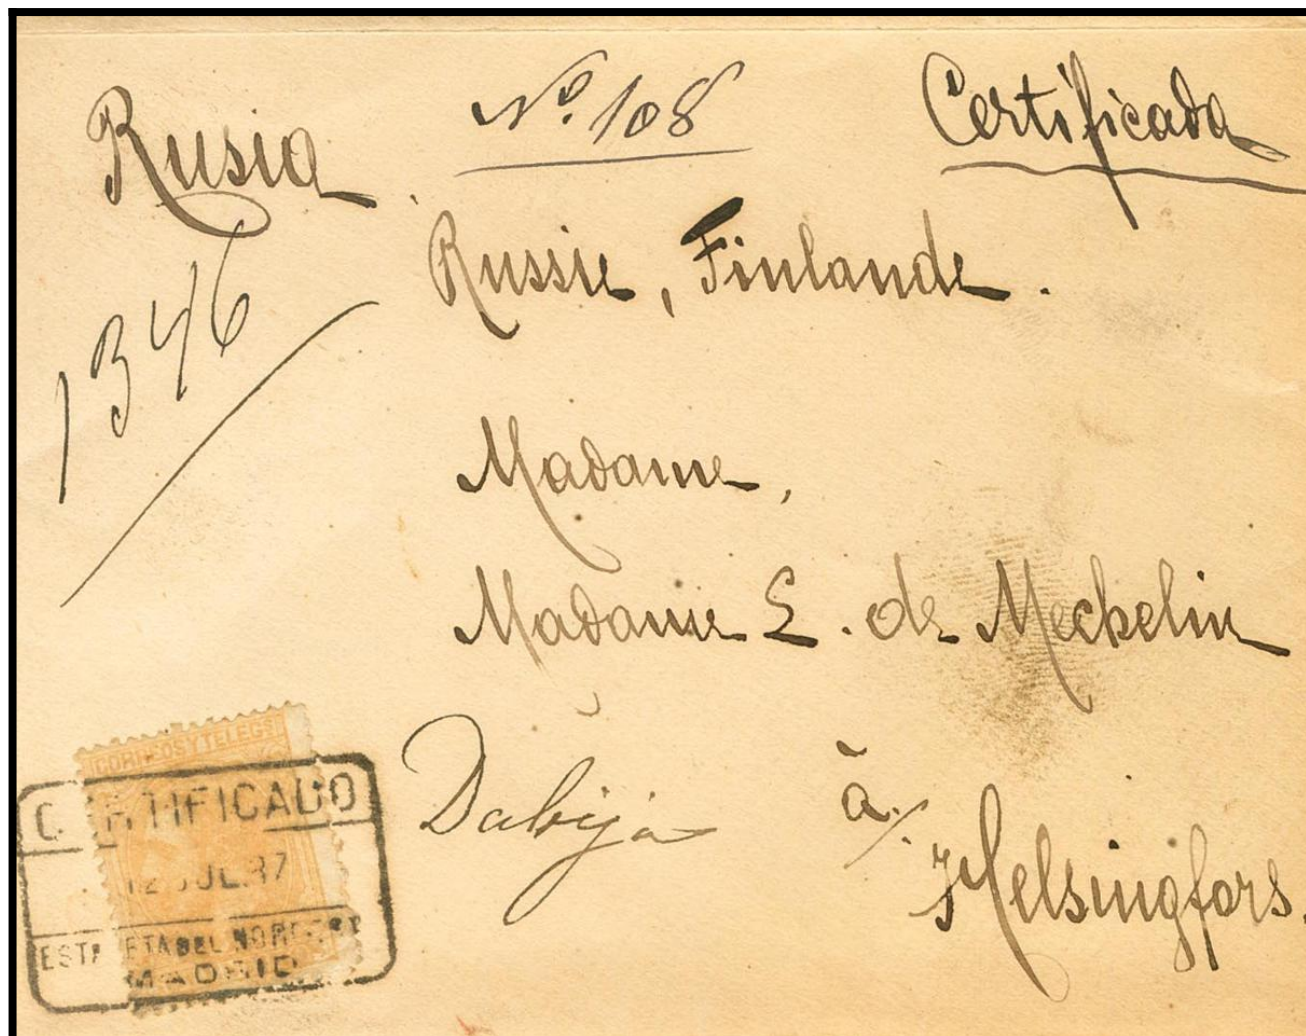 Rusia
Nº 108
Certificada
1346
Russie, Finlande.
Madame,
Madame E. de Mechelin
Dabija
à
Helsingfors.
CORREOS Y TELEGS
CERTIFICADO
12 JUL. 87
ESTAFETA DEL NORDESTE
MADRID